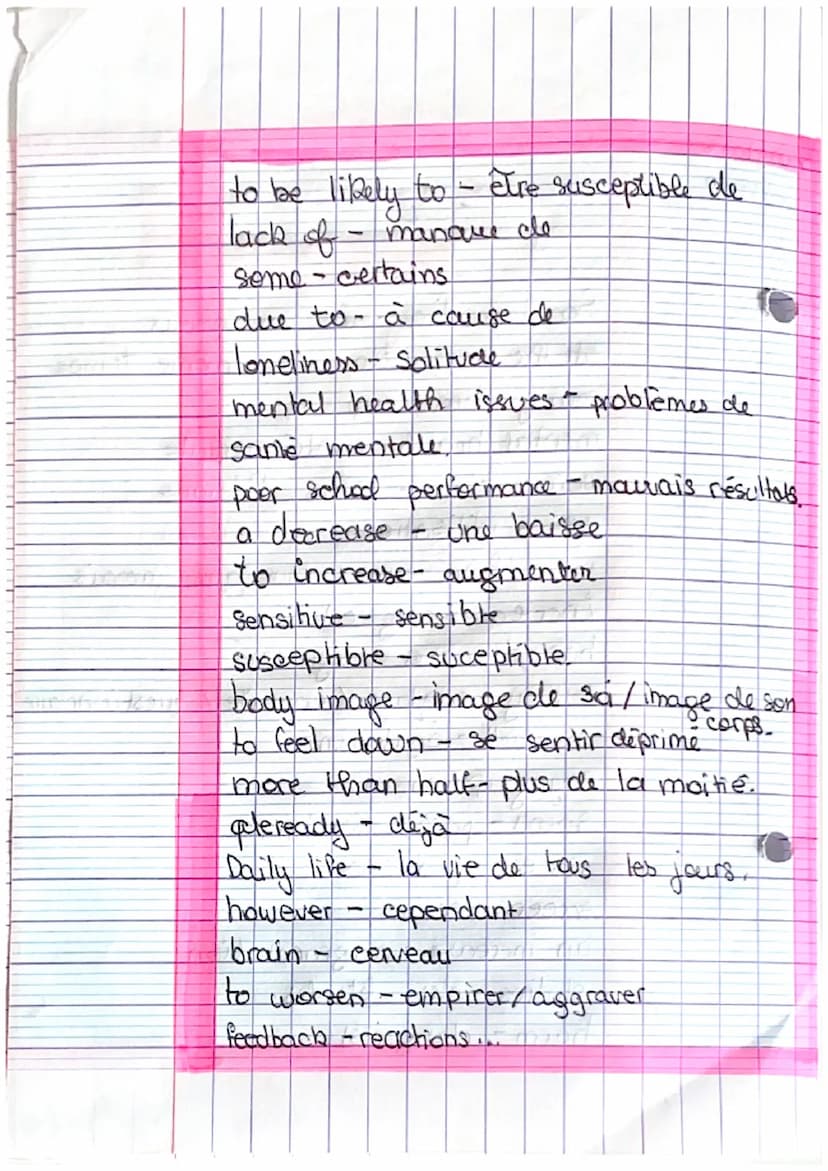 to be likely to - être susceptible de
lack of - manque de
some - certains
due to - à cause de
loneliness - solitude
mental health issues - problèmes de
santé mentale.
poor school performance - mauvais résultats.
a decrease - une baisse
to increase - augmenter
sensitive - sensible
susceptibre - suceptible.
body image - image de soi / image de son
corps.
to feel down - se sentir déprimé
more than half - plus de la moitié.
aleready - déjà
Daily life - la vie de tous les jours.
however - cependant
brain - cerveau
to worsen - empirer / aggraver
feedback - réactions...